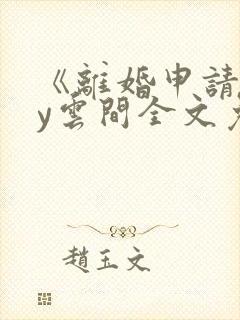 《離婚申請
y雲間全文
趙玉文